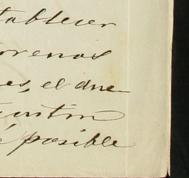 tablecer
orenos
es, el due-
tintin
é posible